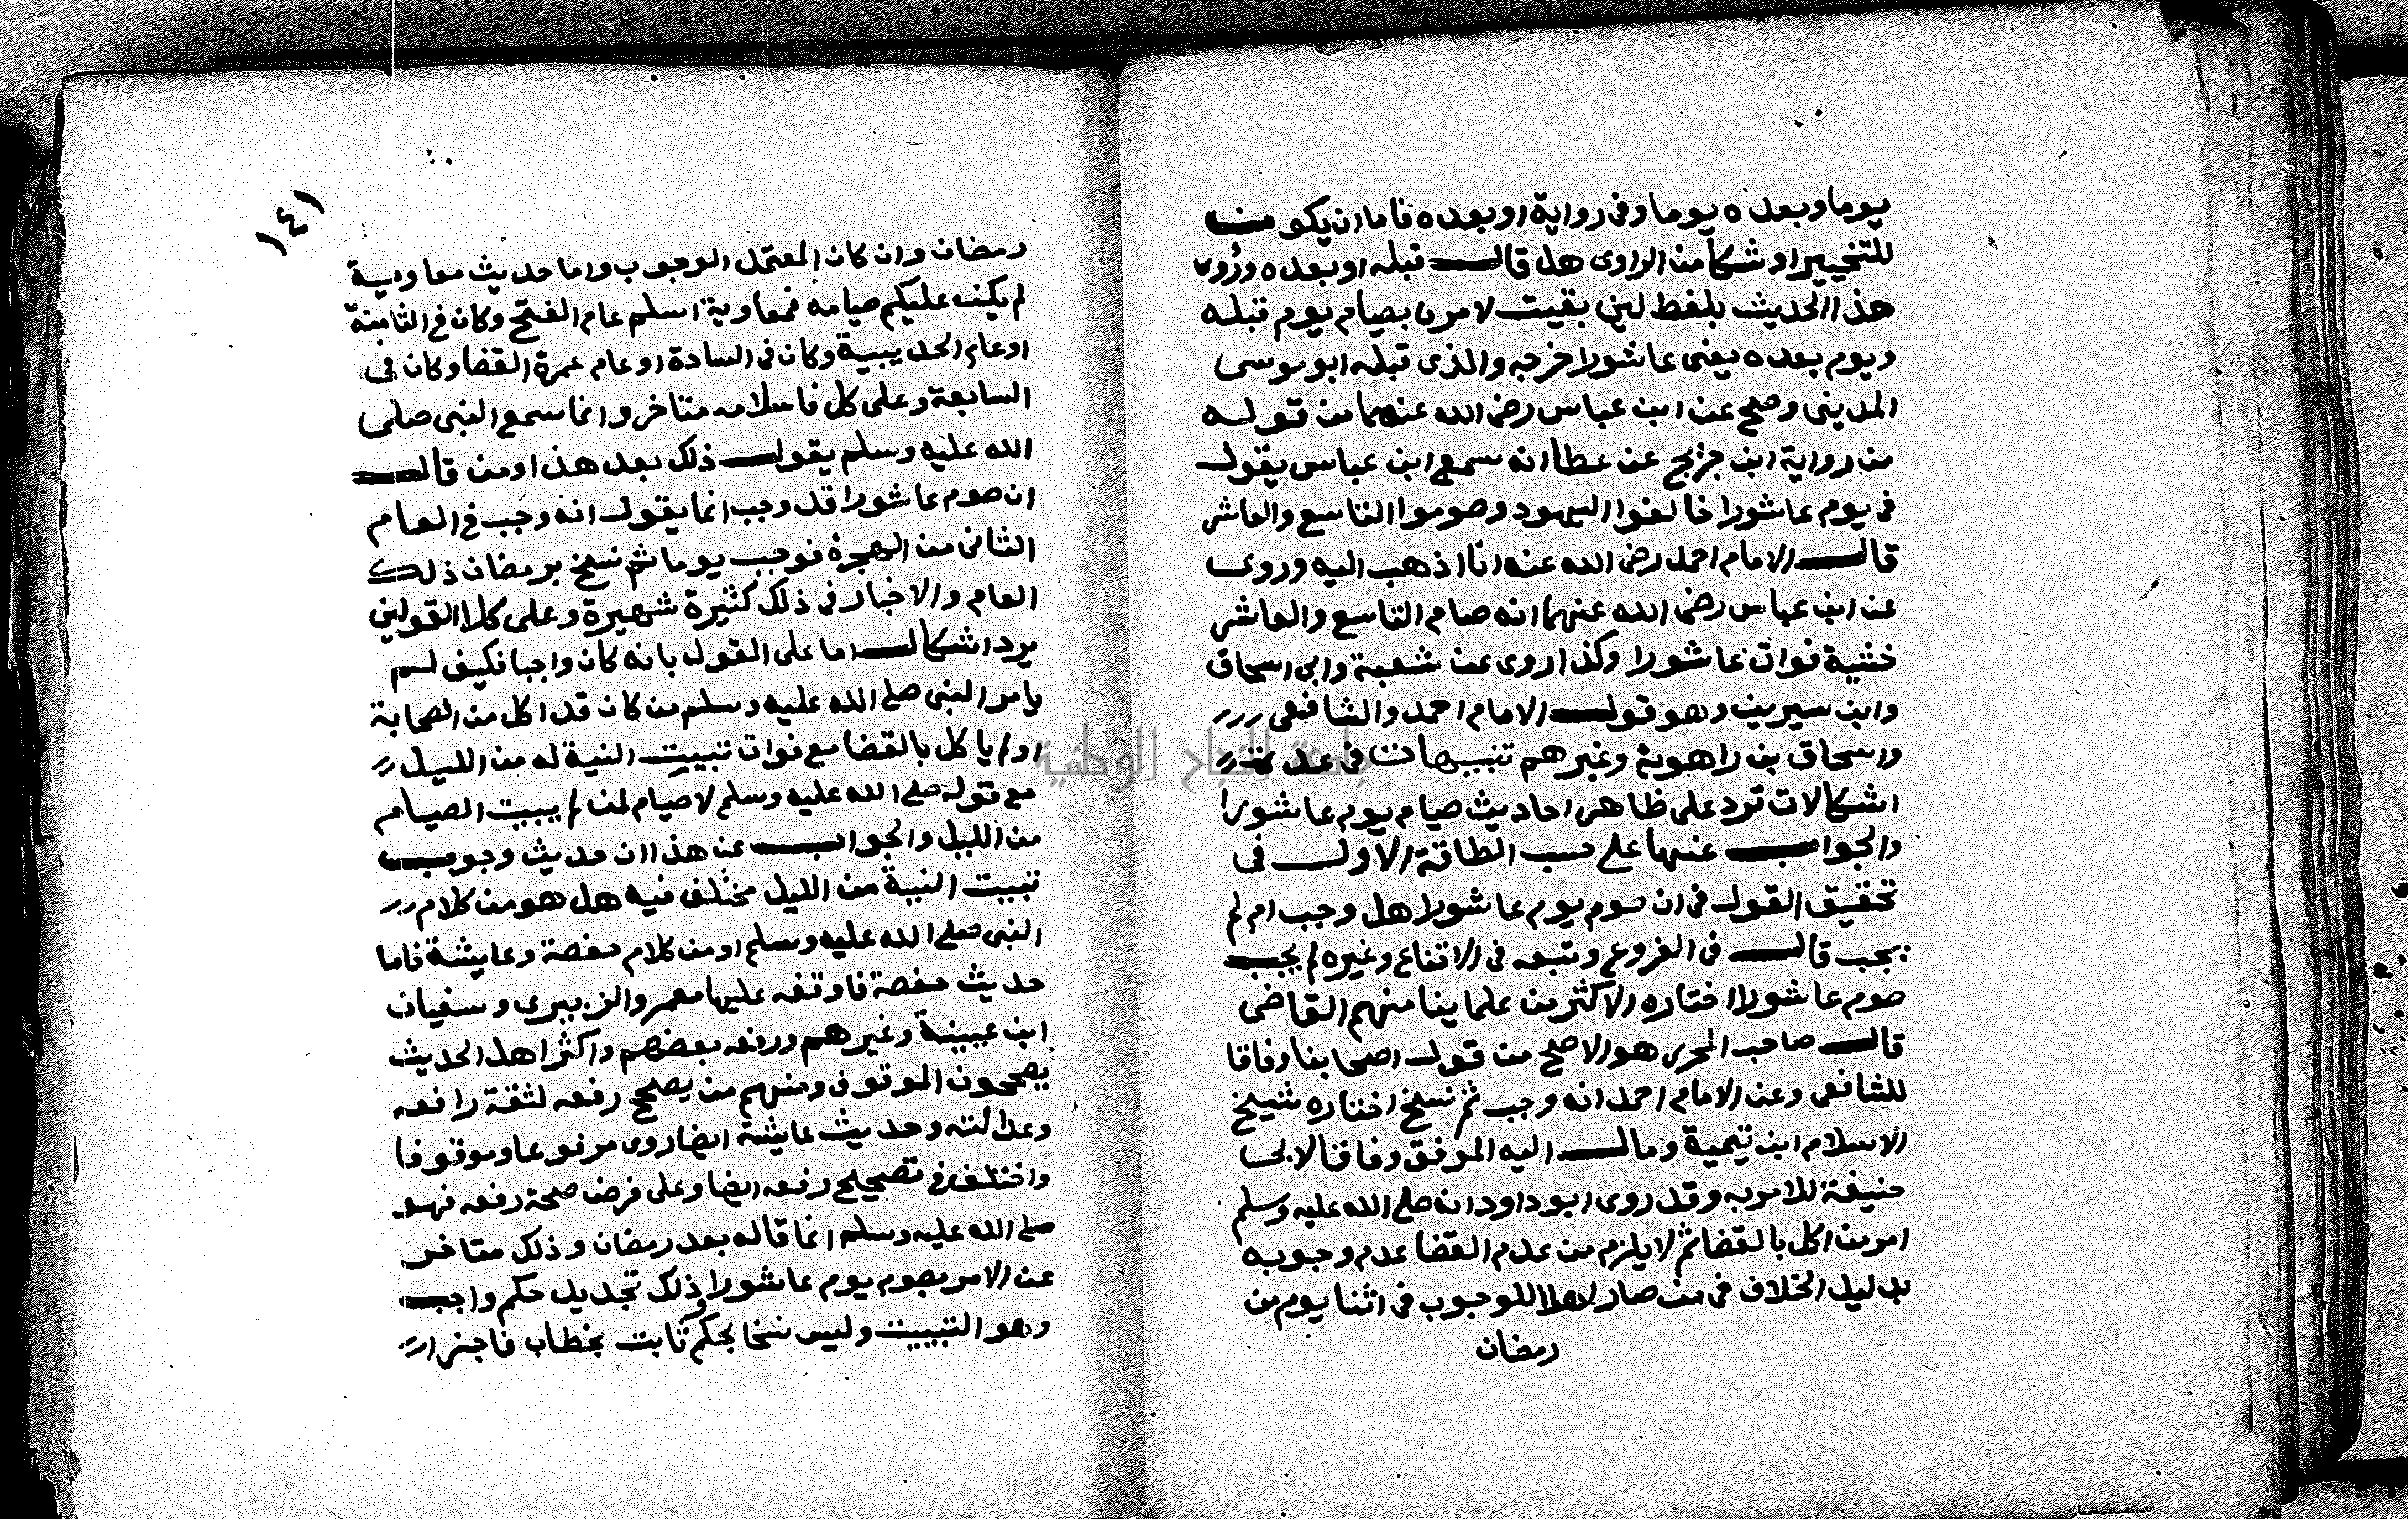 يوما وبعده يوما وفى رواية او بعده فاما ان يكو
للتخيير او شكا من الراوى هل قال قبله او بعده وروى
هذا الحديث بلفظ لين بقيت لامرن بصيام يوم قبله
ويوم بعده يعنى عاشورا خرجه والذى قبله ابو موسى
المدينى وصح عن ابن عباس رضى الله عنهما من قوله
من رواية ابن جريج عن عطا انه سمع ابن عباس يقول
فى يوم عاشورا خالفوا اليهود وصوموا التاسع والعاشر
قال الامام احمد رضى الله عنه انا اذهب اليه وروى
عن ابن عباس رضى الله عنهما انه صام التاسع والعاشر
خشية فوات عاشورا وكذا روى عن شعبة وابى اسحاق
وابن سيرين وهو قول الامام احمد والشافعى
واسحاق بن راهوية وغيرهم تنبيهات فى عدة
اشكالات ترد على ظاهر احاديث صيام يوم عاشورا
والجواب عنها على حسب الطاقة الاول فى
تحقيق القول فى ان صوم يوم عاشورا هل وجب ام لم
يجب قال فى الفروع وتبعه فى الاقناع وغيره لم يجب
صوم عاشورا اختاره الاكثر من علماينا منهم القاضى
قال صاحب المحرر هو الاصح من قول اصحابنا وفاقا
للشافعى وعن الامام احمد انه وجب ثم نسخ اختاره شيخ
الاسلام ابن تيمية ومال اليه الموفق وفاقا لابى
حنيفة للامر به وقد روى ابو داود انه صلى الله عليه وسلم
امر من اكل بالقضا ثم لا يلزم من عدم القضا عدم وجوبه
بدليل الخلاف فى من صار اهلا للوجوب فى اثنا يوم من
رمضان
١٤١
رمضان وان كان المعتمد الوجوب واما حديث معاوية
لم يكتب عليكم صيامه فمعاوية اسلم عام الفتح وكان فى الثامنة
او عام الحديبية وكان فى السادة او عام عمرة القضا وكان فى
السابعة وعلى كل فاسلامه متاخر وانما سمع النبى صلى
الله عليه وسلم يقول ذلك بعد هذا ومن قال
ان صوم عاشورا قد وجب انما يقول انه وجب فى العام
الثانى من الهجرة فوجب يوما ثم نسخ برمضان ذلك
العام والاخبار فى ذلك كثيرة شهيرة وعلى كلا القولين
يرد اشكال اما على القول بانه كان واجبا فكيف لم
يامر النبى صلى الله عليه وسلم من كان قد اكل من الصحابة
او لم ياكل بالقضا مع فوات تبييت النية له من الليل
مع قوله صلى الله عليه وسلم لا صيام لمن لم يبيت الصيام
من الليل والجواب عن هذا ان حديث وجوب
تبييت النية من الليل مختلف فيه هل هو من كلام
النبى صلى الله عليه وسلم او من كلام حفصة وعايشة فاما
حديث حفصة فاوقفه عليها معمر والزبيرى وسفيان
ابن عيينة وغيرهم ورفعه بعضهم واكثر اهل الحديث
يصححون الموقوف ومنهم من يصحح رفعه لثقة رافعه
وعدالته وحديث عايشة ايضا روى مرفوعا وموقوفا
واختلف فى تصحيح رفعه ايضا وعلى فرض صحة رفعه فهو
صلى الله عليه وسلم انما قاله بعد رمضان وذلك متاخر
عن الامر بصوم يوم عاشورا وذلك تجديد حكم واجب
وهو التبييت وليس نسخا لحكم ثابت بخطاب فاجزا
جامعة النجاح الوطنية